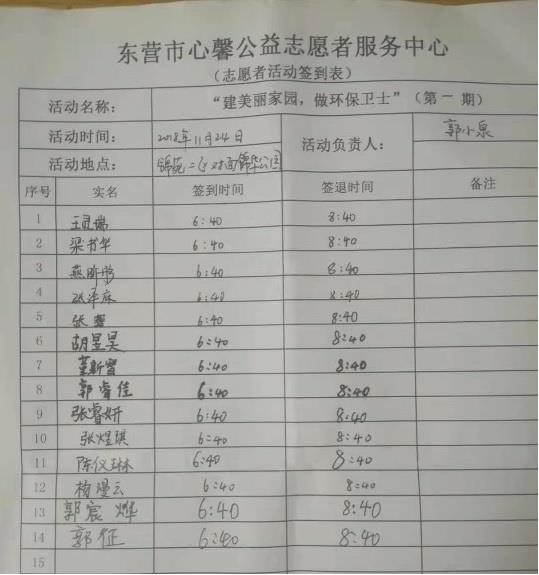 东营市心馨公益志愿者服务中心
（志愿者活动签到表）
活动名称： “建美丽家园，做环保卫士”（第一期）
活动时间： 2018年11月24日 活动负责人： 郭小泉
活动地点： 锦苑二区对面锦华公园
序号 实名 签到时间 签退时间 备注
1 王灵瑞 6:40 8:40
2 梁书华 6:40 8:40
3 燕 6:40 8:40
4 6:40 8:40
5 张 6:40 8:40
6 胡昱昊 6:40 8:40
7 董新蕾 6:40 8:40
8 郭睿佳 6:40 8:40
9 张睿妍 6:40 8:40
10 张煜琪 6:40 8:40
11 陈仪琳 6:40 8:40
12 杨漫云 6:40 8:40
13 郭宸烨 6:40 8:40
14 郭征 6:40 8:40
15